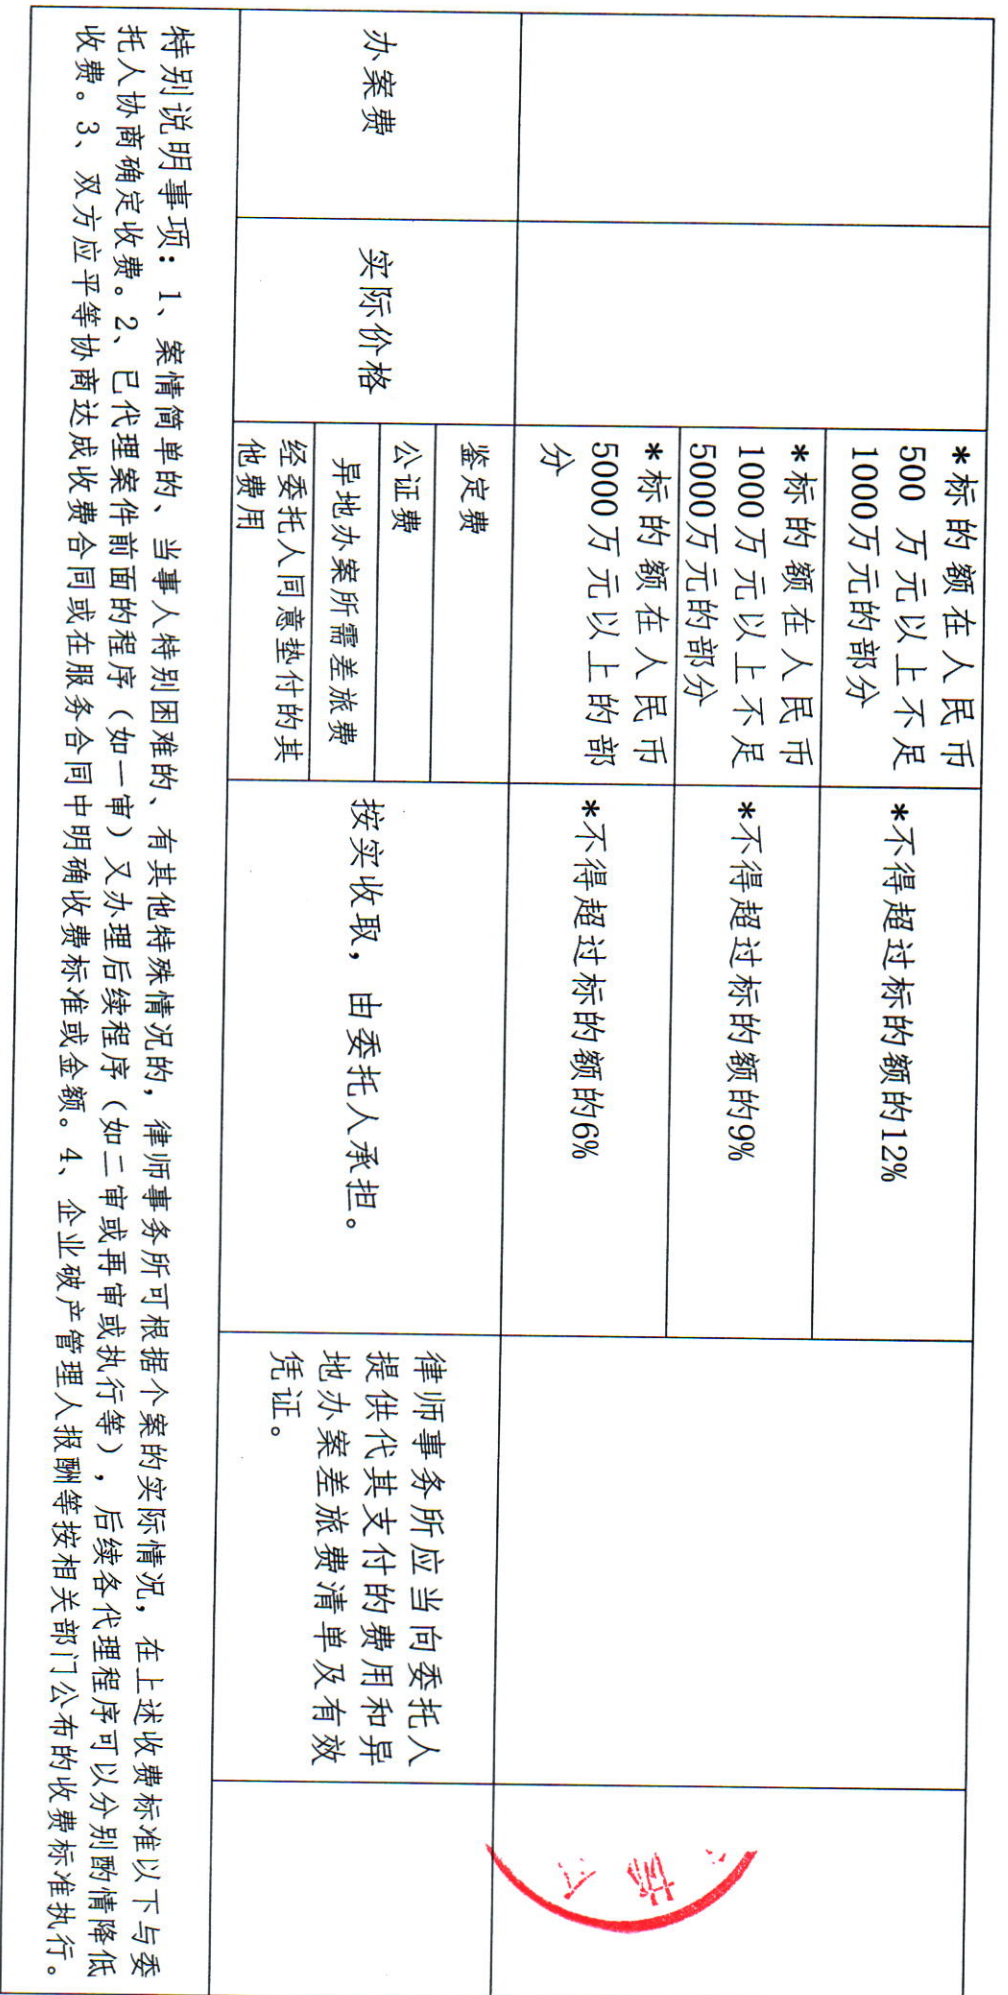 *标的额在人民币
500 万元以上不足
1000万元的部分
*不得超过标的额的12%
*标的额在人民币
1000万元以上不足
5000万元的部分
*不得超过标的额的9%
*标的额在人民币
5000万元以上的部
分
*不得超过标的额的6%
办案费
实际价格
鉴定费
公证费
异地办案所需差旅费
经委托人同意垫付的其
他费用
按实收取，由委托人承担。
律师事务所应当向委托人
提供代其支付的费用和异
地办案差旅费清单及有效
凭证。
特别说明事项：1、案情简单的、当事人特别困难的、有其他特殊情况的，律师事务所可根据个案的实际情况，在上述收费标准以下与委
托人协商确定收费。2、已代理案件前面的程序（如一审）又办理后续程序（如二审或再审或执行等），后续各代理程序可以分别酌情降低
收费。3、双方应平等协商达成收费合同或在服务合同中明确收费标准或金额。4、企业破产管理人报酬等按相关部门公布的收费标准执行。